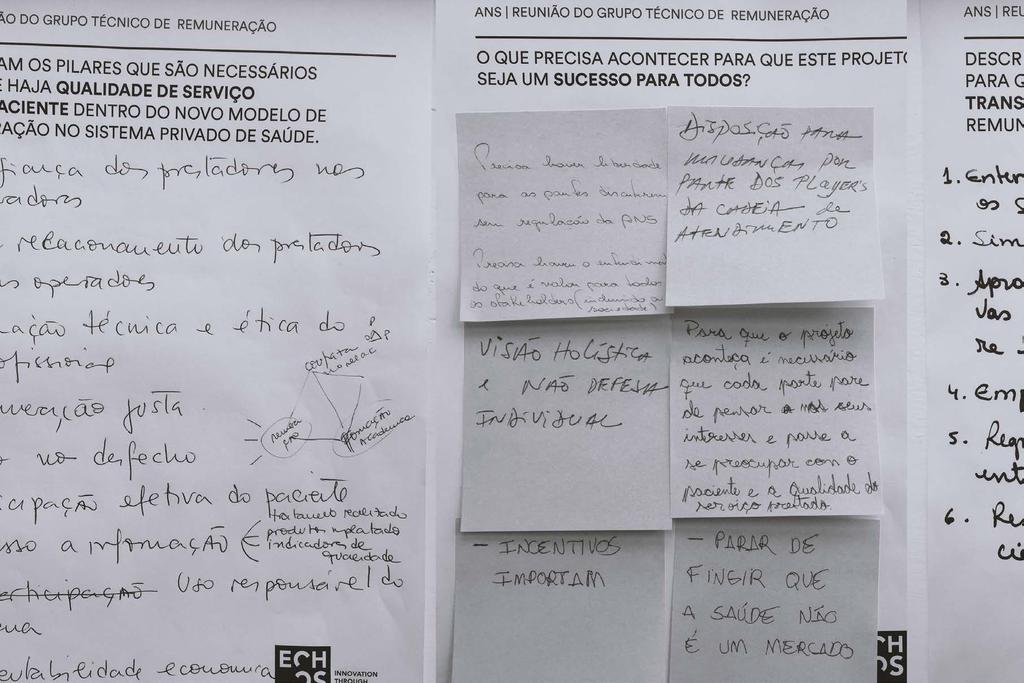 ÃO DO GRUPO TÉCNICO DE REMUNERAÇÃO
AM OS PILARES QUE SÃO NECESSÁRIOS
E HAJA QUALIDADE DE SERVIÇO
ACIENTE DENTRO DO NOVO MODELO DE
RAÇÃO NO SISTEMA PRIVADO DE SAÚDE.
fiança dos prestadores nos
radores
relacionamento dos prestadores
operadoes
ação técnica e ética do
ofissional
neração justa
no desfecho
icipação efetiva do paciente
sso a informação
tratamento realizado
produtos implantado
indicadores de
qualidade
participação Uso responsável do
ema
entabilidade economica
conduta
remuneração
formação
Acadêmica
ECH
OS
INNOVATION
THROUGH
ANS | REUNIÃO DO GRUPO TÉCNICO DE REMUNERAÇÃO
O QUE PRECISA ACONTECER PARA QUE ESTE PROJETO
SEJA UM SUCESSO PARA TODOS?
Precisa haver liberdade
para as partes discutirem
sem regulação da ANS
Precisa haver o entendi
do que é valor para todos
os stakeholders (incluindo a
sociedade)
DISPOSIÇÃO PARA
MUDANÇAS POR
PARTE DOS PLAYERS
DA CADEIA de
ATENDIMENTO
VISÃO HOLÍSTICA
E NÃO DEFESA
INDIVIDUAL
Para que o projeto
aconteça é necessário
que cada parte pare
de pensar nos seus
interesses e passe a
se preocupar com o
paciente e a qualidade do
serviço prestado.
- INCENTIVOS
IMPORTAM
- PARAR DE
FINGIR QUE
A SAÚDE NÃO
É UM MERCADO
HS
ANS | REU
DESCR
PARA Q
TRANS
REMUN
1. Enter
os S
2. Sim
3. Apro
vas
re
4. Emp
5. Reg
ent
6. Re
cie